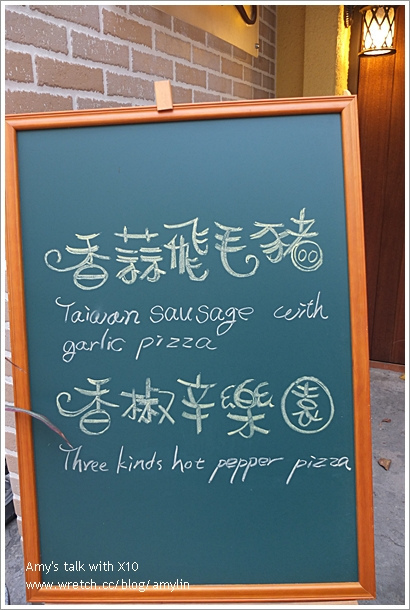 香蒜飛毛豬
Taiwan sausage with
garlic pizza
香椒辛樂園
Three kinds hot pepper pizza
Amy's talk with X10
www.wretch.cc/blog/amylin